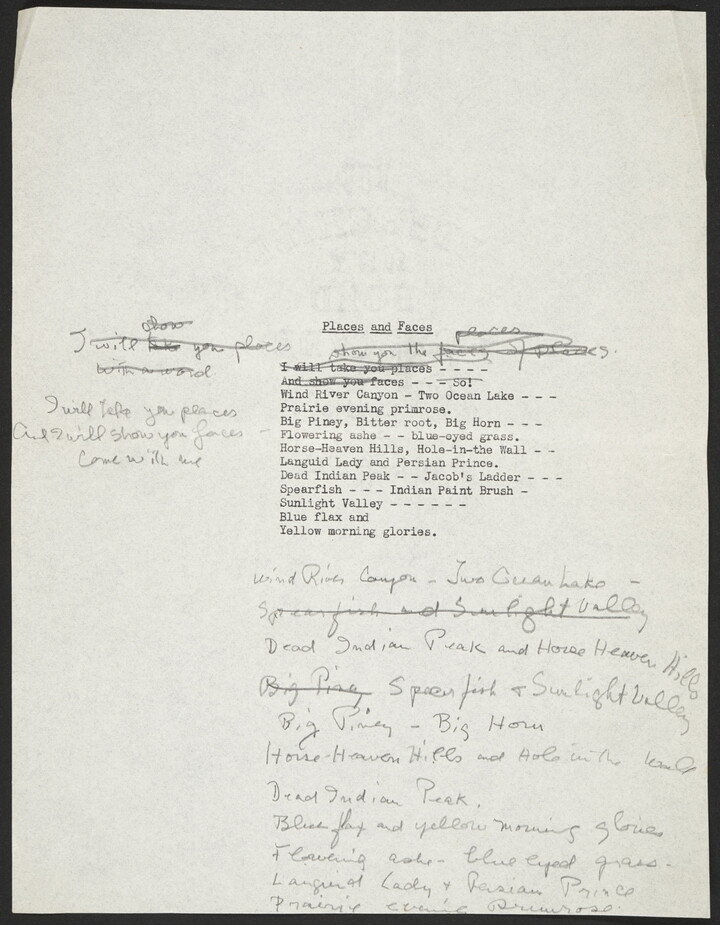 Places and Faces
places
show
I will take you places
show you the faces of places.
with a word
I will take you places - - - - -
And show you faces - - - So!
Wind River Canyon - Two Ocean Lake - - -
Prairie evening primrose.
Big Piney, Bitter root, Big Horn - - -
Flowering ashe - - blue-eyed grass.
Horse-Heaven Hills, Hole-in-the Wall - -
Languid Lady and Persian Prince.
Dead Indian Peak - - Jacob's Ladder - - -
Spearfish - - - Indian Paint Brush -
Sunlight Valley - - - - - -
Blue flax and
Yellow morning glories.
I will take you places
And I will show you faces -
Come with me
Wind River Canyon - Two Ocean Lake -
Spearfish and Sunlight Valley
Dead Indian Peak and Horse Heaven Hills
Big Piney Spearfish & Sunlight Valley
Big Piney - Big Horn
Horse-Heaven Hills and Hole in the Wall
Dead Indian Peak.
Blue flax and yellow morning glories
Flowering ashe - blue eyed grass -
Languid Lady & Persian Prince
Prairie evening Primrose.